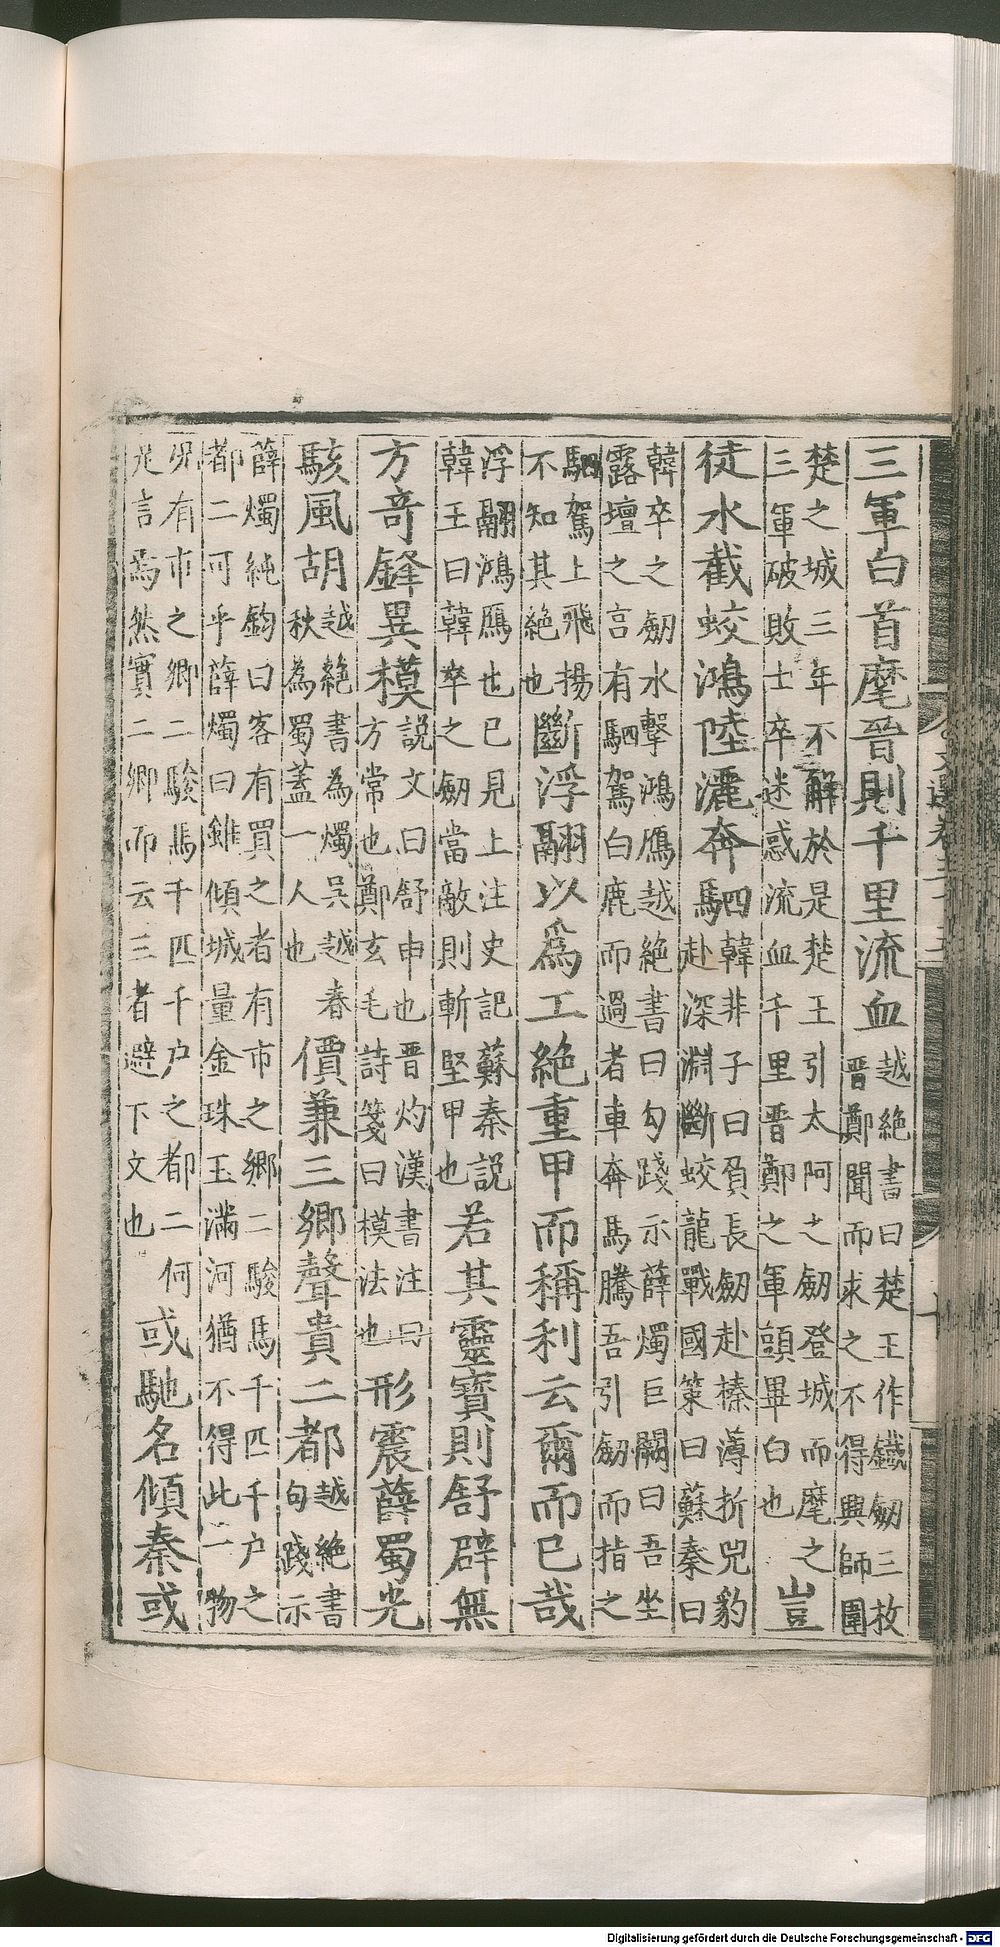 三軍白首麾晉則千里流血越絶書曰楚王作鐵劒三枚
晉鄭聞而求之不得興師圍
楚之城三年不解於是楚王引太阿之劒登城而麾之
三軍破敗士卒迷惑流血千里晋鄭之軍頭畢白也豈
徒水截蛟鴻陸灑奔駟韓非子曰負長劒赴榛薄折兕豹
赴深淵斷蛟龍戰國策曰蘇秦曰
韓卒之劒水擊鴻鴈越絶書曰勾踐示薛燭巨闕曰吾坐
露壇之宫有駟駕白鹿而過者車奔馬騰吾引劒而指之
駟駕上飛揚
不知其絶也斷浮翮以爲工絶重甲而稱利云爾而已哉
浮翮鴻鴈也已見上注史記蘇秦説
韓王曰韓卒之劒當敵則斬堅甲也若其靈寶則舒辟無
方奇鋒異模説文曰舒申也晋灼漢書注曰
方常也鄭玄毛詩箋曰模法也形震薛蜀光
駭風胡越絶書為燭吳越春
秋為蜀蓋一人也價兼三鄉聲貴二都越絶書
句踐示
薛燭純鈞曰客有買之者有市之鄉二駿馬千匹千户之
都二可乎薛燭曰雖傾城量金珠玉滿河猶不得此一物
况有市之鄉二駿馬千匹千户之都二何
足言焉然實二鄉而云三者避下文也或馳名傾秦或